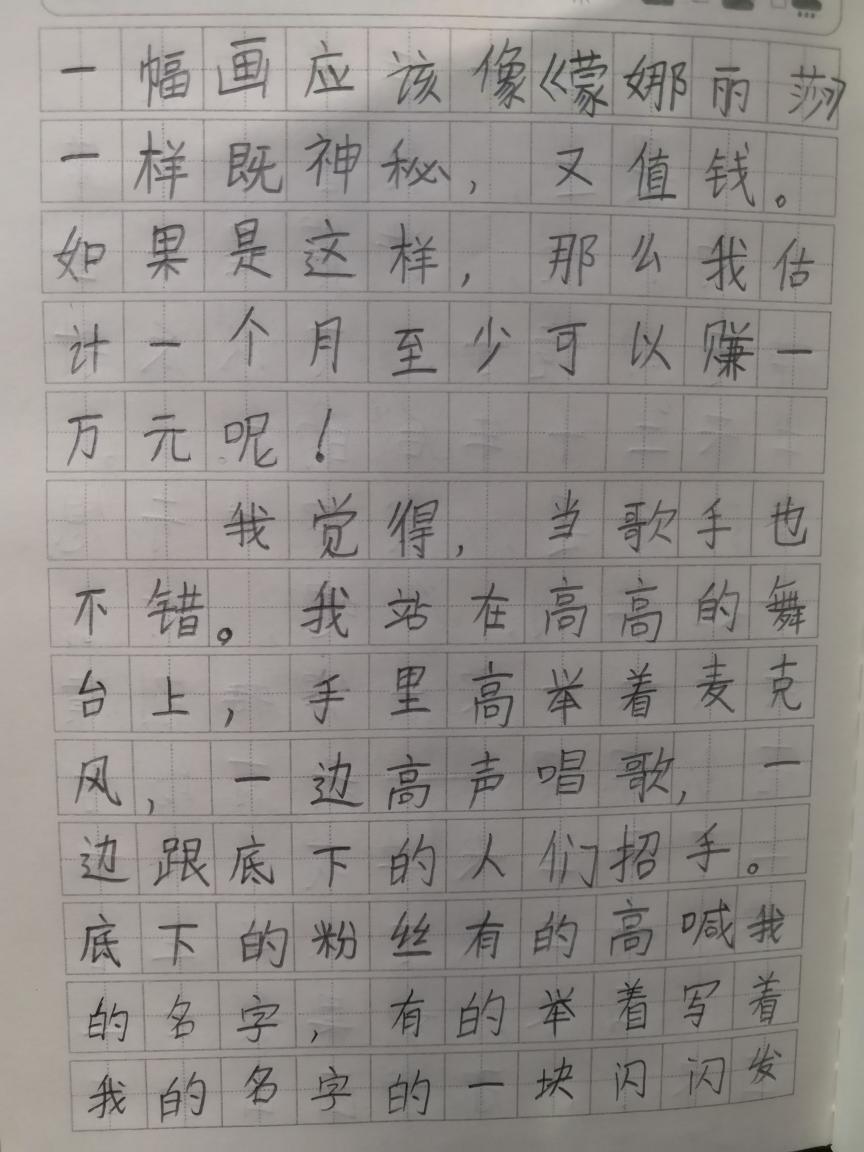 一幅画应该像《蒙娜丽莎》
一样既神秘，又值钱。
如果是这样，那么我估
计一个月至少可以赚一
万元呢！
我觉得，当歌手也
不错。我站在高高的舞
台上，手里高举着麦克
风，一边高声唱歌，一
边跟底下的人们招手。
底下的粉丝有的高喊我
的名字，有的举着写着
我的名字的一块闪闪发